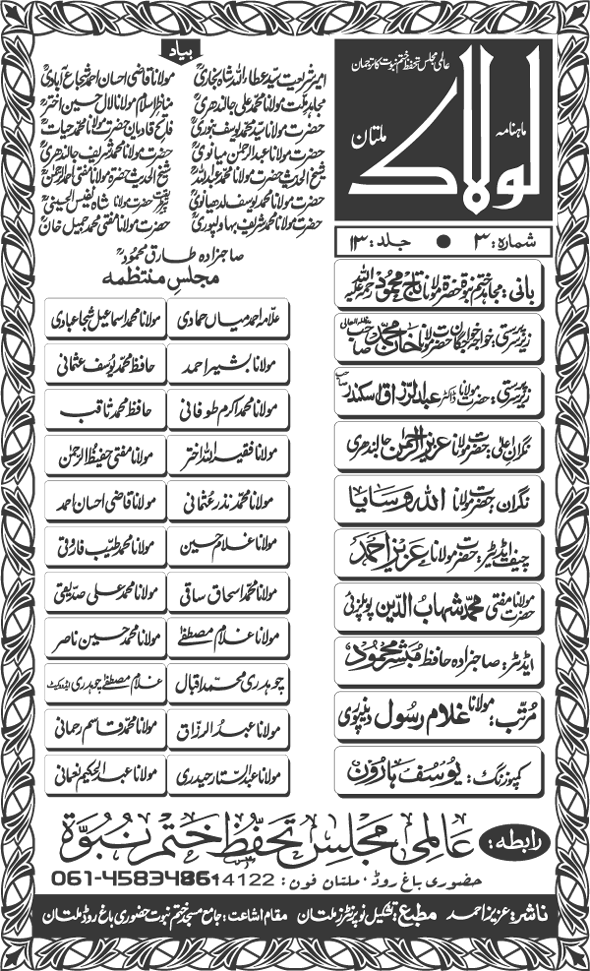 عالمی مجلس تحفظ ختم نبوت کا ترجمان
ماہنامہ
لولاک
ملتان
شمارہ: ۳ ● جلد: ۱۳
بانی: مجاہد ختم نبوۃ حضرۃ مولانا تاج محمود رحمۃ اللہ علیہ
زیر سرپرستی: خواجہ خواجگان حضرت مولانا خان محمد صاحب مدظلہ العالی
زیر سرپرستی: حضرت مولانا ڈاکٹر عبدالرزاق اسکندر صاحب
نگران اعلیٰ: حضرت مولانا عزیز الرحمن جالندھری
نگران: حضرت مولانا اللہ وسایا
چیف ایڈیٹر: حضرت مولانا عزیز احمد
حضرت مولانا مفتی محمد شہاب الدین پوپلزئی
ایڈیٹر: صاحبزادہ حافظ مبشر محمود
مرتب: مولانا غلام رسول دینپوری
کمپوزنگ: یوسف ہارون
بیاد
امیر شریعت سید عطاء اللہ شاہ بخاریؒ مولانا قاضی احسان احمد شجاع آبادیؒ
مجاہد ملت مولانا محمد علی جالندھریؒ مناظر اسلام مولانا لال حسین اخترؒ
حضرت مولانا سید محمد یوسف بنوریؒ فاتح قادیان حضرت مولانا محمد حیاتؒ
حضرت مولانا عبدالرحمن میانویؒ حضرت مولانا محمد شریف جالندھریؒ
شیخ الحدیث حضرت مولانا محمد عبداللہؒ شیخ الحدیث حضرۃ مولانا مفتی احمد الرحمنؒ
حضرت مولانا محمد یوسف لدھیانویؒ حضرت مولانا شاہ نفیس الحسینیؒ
حضرت مولانا محمد شریف بہاولپوریؒ حضرت مولانا مفتی محمد جمیل خانؒ
صاحبزادہ طارق محمودؒ
مجلس منتظمہ
علامہ احمد میاں حمادی مولانا محمد اسماعیل شجاعبادی
مولانا بشیر احمد حافظ محمد یوسف عثمانی
مولانا محمد اکرم طوفانی حافظ محمد ثاقب
مولانا فقیر اللہ اختر مولانا مفتی حفیظ الرحمن
مولانا محمد نذر عثمانی مولانا قاضی احسان احمد
مولانا غلام حسین مولانا محمد طیب فاروقی
مولانا محمد اسحاق ساقی مولانا محمد علی صدیقی
مولانا غلام مصطفےٰ مولانا محمد حسین ناصر
چوہدری محمد اقبال غلام مصطفےٰ چوہدری ایڈووکیٹ
مولانا عبدالرزاق مولانا محمد قاسم رحمانی
مولانا عبدالستار حیدری مولانا عبدالحکیم نعمانی
رابطہ: عالمی مجلس تحفظ ختم نبوۃ
حضوری باغ روڈ، ملتان فون:
ناشر: عزیز احمد مطبع: تشکیل نو پرنٹرز ملتان مقام اشاعت: جامع مسجد ختم نبوت حضوری باغ روڈ ملتان